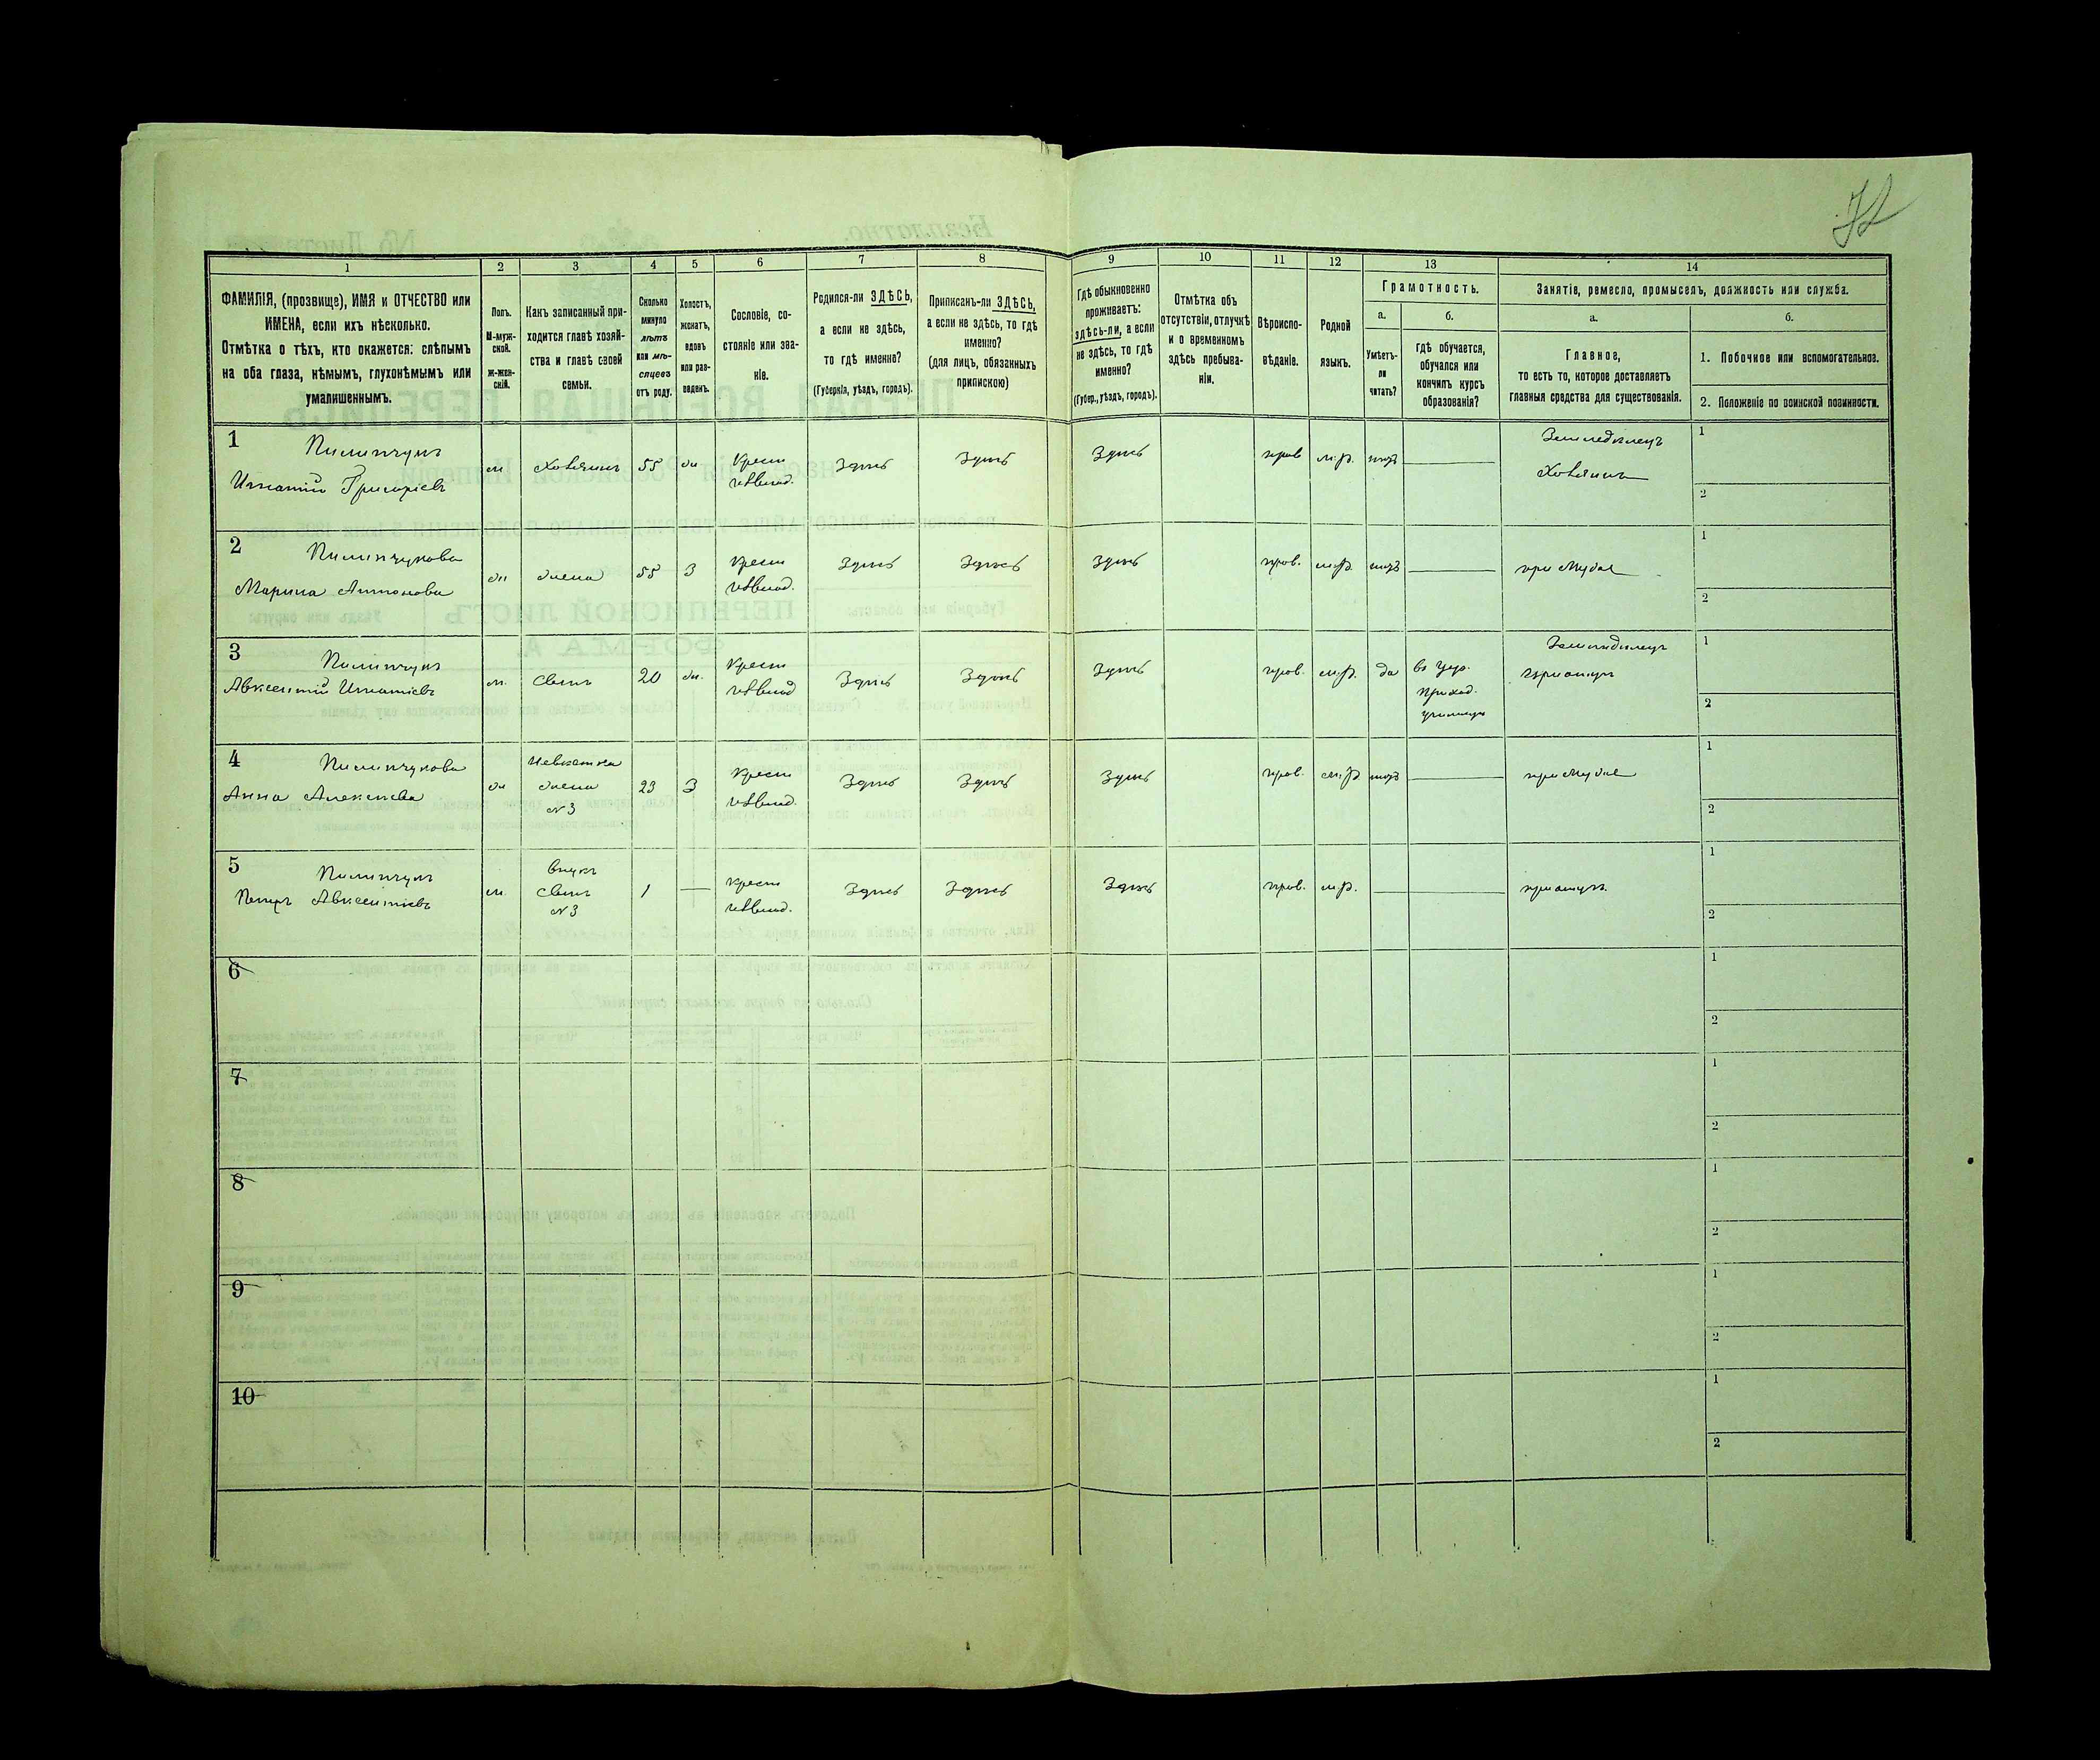 72
1
2
3
4
5
6
7
8
9
10
11
12
13
14
ФАМИЛІЯ, (прозвище), ИМЯ и ОТЧЕСТВО или
ИМЕНА, если ихъ нѣсколько.
Отмѣтка о тѣхъ, кто окажется: слѣпымъ
на оба глаза, нѣмымъ, глухонѣмымъ или
умалишеннымъ.
Полъ.
М-муж-
ской.
Ж-жен-
скій.
Какъ записанный при-
ходится главѣ хозяй-
ства и главѣ своей
семьи.
Сколько
минуло
лѣтъ
или мѣ-
сяцевъ
отъ роду.
Холостъ,
женатъ,
вдовъ
или раз-
веденъ.
Сословіе, со-
стояніе или зва-
ніе.
Родился-ли ЗДѢСЬ,
а если не здѣсь,
то гдѣ именно?
(Губернія, уѣздъ, городъ).
Приписанъ-ли ЗДѢСЬ,
а если не здѣсь, то гдѣ
именно?
(для лицъ, обязанныхъ
припискою)
Гдѣ обыкновенно
проживаетъ:
здѣсь-ли, а если
не здѣсь, то гдѣ
именно?
(Губер., уѣздъ, городъ).
Отмѣтка объ
отсутствіи, отлучкѣ
и о временномъ
здѣсь пребыва-
ніи.
Вѣроиспо-
вѣданіе.
Родной
языкъ.
Грамотность.
а.
Умѣетъ-
ли
читать?
б.
Гдѣ обучается,
обучался или
кончилъ курсъ
образованія?
Занятіе, ремесло, промыселъ, должность или служба.
а.
Главное,
то есть то, которое доставляетъ
главныя средства для существованія.
б.
1. Побочное или вспомогательное.
2. Положеніе по воинской повинности.
1
Пилипчукъ
Игнатій Григоріевъ
м
Хозяинъ
55
ж
Крест
изъ влад.
Здѣсь
Здѣсь
Здѣсь
прав
м.р.
нѣтъ
Земледѣлецъ
Хозяинъ
1
2
2
Пилипчукова
Марина Антонова
ж
жена
55
З
Крест
изъ влад.
Здѣсь
Здѣсь
Здѣсь
прав.
м.р.
нѣтъ
при мужѣ
1
2
3
Пилипчукъ
Авксентій Игнатіевъ
м.
сынъ
20
ж.
Крест
изъ влад
Здѣсь
Здѣсь
Здѣсь
прав.
м.р.
да
въ цер.
приход.
училищѣ
Земледѣлецъ
при отцѣ
1
2
4
Пилипчукова
Анна Алексѣева
ж
невѣстка
жена
№3
23
З
Крест
изъ влад.
Здѣсь
Здѣсь
Здѣсь
прав.
м.р
нѣтъ
при мужѣ
1
2
5
Пилипчукъ
Петръ Авксентіевъ
м.
внукъ
сынъ
№3
1
крест
изъ влад.
Здѣсь
Здѣсь
Здѣсь
прав.
м.р.
при отцѣ
1
2
6
1
2
7
1
2
8
1
2
9
1
2
10
1
2